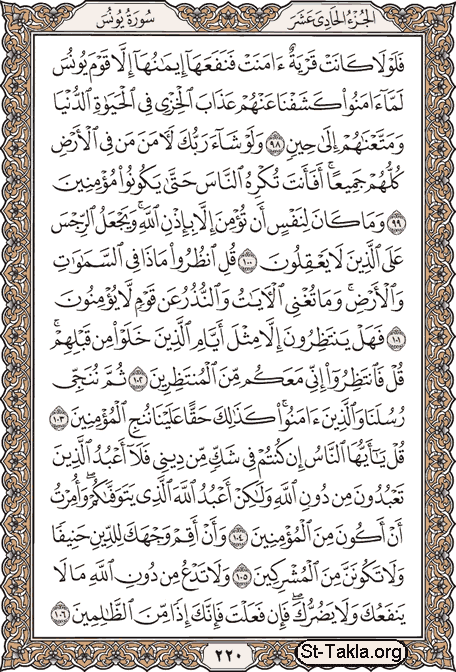 سُورَةُ يُونُسَ
الجُزْءُ الحَادِي عَشَرَ
فَلَوْلَا كَانَتْ قَرْيَةٌ ءَامَنَتْ فَنَفَعَهَآ إِيمَٰنُهَآ إِلَّا قَوْمَ يُونُسَ
لَمَّآ ءَامَنُوا۟ كَشَفْنَا عَنْهُمْ عَذَابَ ٱلْخِزْىِ فِى ٱلْحَيَوٰةِ ٱلدُّنْيَا
وَمَتَّعْنَٰهُمْ إِلَىٰ حِينٍ ٩٨ وَلَوْ شَآءَ رَبُّكَ لَـَٔامَنَ مَن فِى ٱلْأَرْضِ
كُلُّهُمْ جَمِيعًا ۚ أَفَأَنتَ تُكْرِهُ ٱلنَّاسَ حَتَّىٰ يَكُونُوا۟ مُؤْمِنِينَ
٩٩ وَمَا كَانَ لِنَفْسٍ أَن تُؤْمِنَ إِلَّا بِإِذْنِ ٱللَّهِ ۚ وَيَجْعَلُ ٱلرِّجْسَ
عَلَى ٱلَّذِينَ لَا يَعْقِلُونَ ١٠٠ قُلِ ٱنظُرُوا۟ مَاذَا فِى ٱلسَّمَٰوَٰتِ
وَٱلْأَرْضِ ۚ وَمَا تُغْنِى ٱلْـَٔايَٰتُ وَٱلنُّذُرُ عَن قَوْمٍ لَّا يُؤْمِنُونَ
١٠١ فَهَلْ يَنتَظِرُونَ إِلَّا مِثْلَ أَيَّامِ ٱلَّذِينَ خَلَوْا۟ مِن قَبْلِهِمْ ۚ
قُلْ فَٱنتَظِرُوٓا۟ إِنِّى مَعَكُم مِّنَ ٱلْمُنتَظِرِينَ ١٠٢ ثُمَّ نُنَجِّى
رُسُلَنَا وَٱلَّذِينَ ءَامَنُوا۟ ۚ كَذَٰلِكَ حَقًّا عَلَيْنَا نُنجِ ٱلْمُؤْمِنِينَ ١٠٣
قُلْ يَٰٓأَيُّهَا ٱلنَّاسُ إِن كُنتُمْ فِى شَكٍّ مِّن دِينِى فَلَآ أَعْبُدُ ٱلَّذِينَ
تَعْبُدُونَ مِن دُونِ ٱللَّهِ وَلَٰكِنْ أَعْبُدُ ٱللَّهَ ٱلَّذِى يَتَوَفَّىٰكُمْ ۖ وَأُمِرْتُ
أَنْ أَكُونَ مِنَ ٱلْمُؤْمِنِينَ ١٠٤ وَأَنْ أَقِمْ وَجْهَكَ لِلدِّينِ حَنِيفًا
وَلَا تَكُونَنَّ مِنَ ٱلْمُشْرِكِينَ ١٠٥ وَلَا تَدْعُ مِن دُونِ ٱللَّهِ مَا لَا
يَنفَعُكَ وَلَا يَضُرُّكَ ۖ فَإِن فَعَلْتَ فَإِنَّكَ إِذًا مِّنَ ٱلظَّٰلِمِينَ ١٠٦
٢٢٠
St-Takla.org